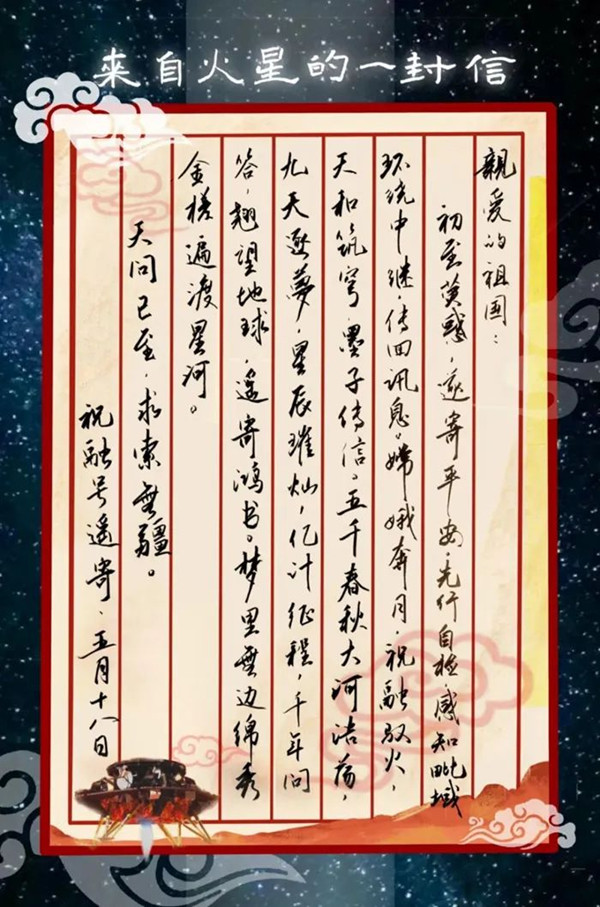 来自火星的一封信
親爱的祖国：
初至荧惑，遥寄平安。先行自检，感知毗域
环绕中继，传回讯息。嫦娥奔月，祝融驭火，
天和筑穹，墨子传信。五千春秋大河浩荡，
九天逐夢，星辰璀灿，亿计征程，千年问
答，翘望地球，遥寄鸿书。梦里無边绵秀
金槎遍渡星河。
天问已至，求索無疆。
祝融号遥寄，五月十八日